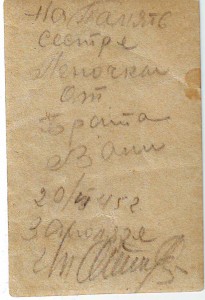 На Память
сестре
Леночки
От
Брата
Вани
20/VI 45 г